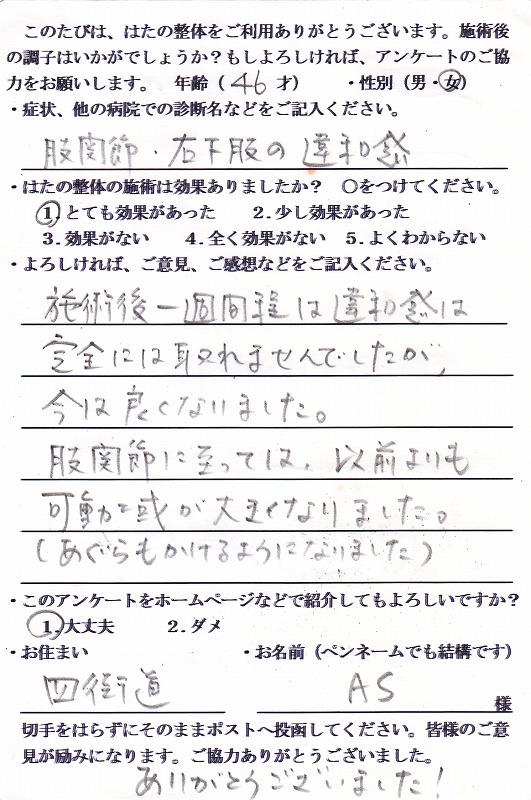 このたびは、はたの整体をご利用ありがとうございます。施術後
の調子はいかがでしょうか？もしよろしければ、アンケートのご協
力をお願いします。 年齢（ 46 才） ・性別（男・女）
・症状、他の病院での診断名などをご記入ください。
股関節・右下肢の違和感
・はたの整体の施術は効果ありましたか？ ○をつけてください。
1.とても効果があった 2.少し効果があった
3.効果がない 4.全く効果がない 5.よくわからない
・よろしければ、ご意見、ご感想などをご記入ください。
施術後一週間程は違和感は
完全には取れませんでしたが、
今は良くなりました。
股関節に至っては、以前よりも
可動域が大きくなりました。
（あぐらもかけるようになりました）
・このアンケートをホームページなどで紹介してもよろしいですか？
1.大丈夫 2.ダメ
・お住まい ・お名前（ペンネームでも結構です）
四街道 AS 様
切手をはらずにそのままポストへ投函してください。皆様のご意
見が励みになります。ご協力ありがとうございました。
ありがとうございました！